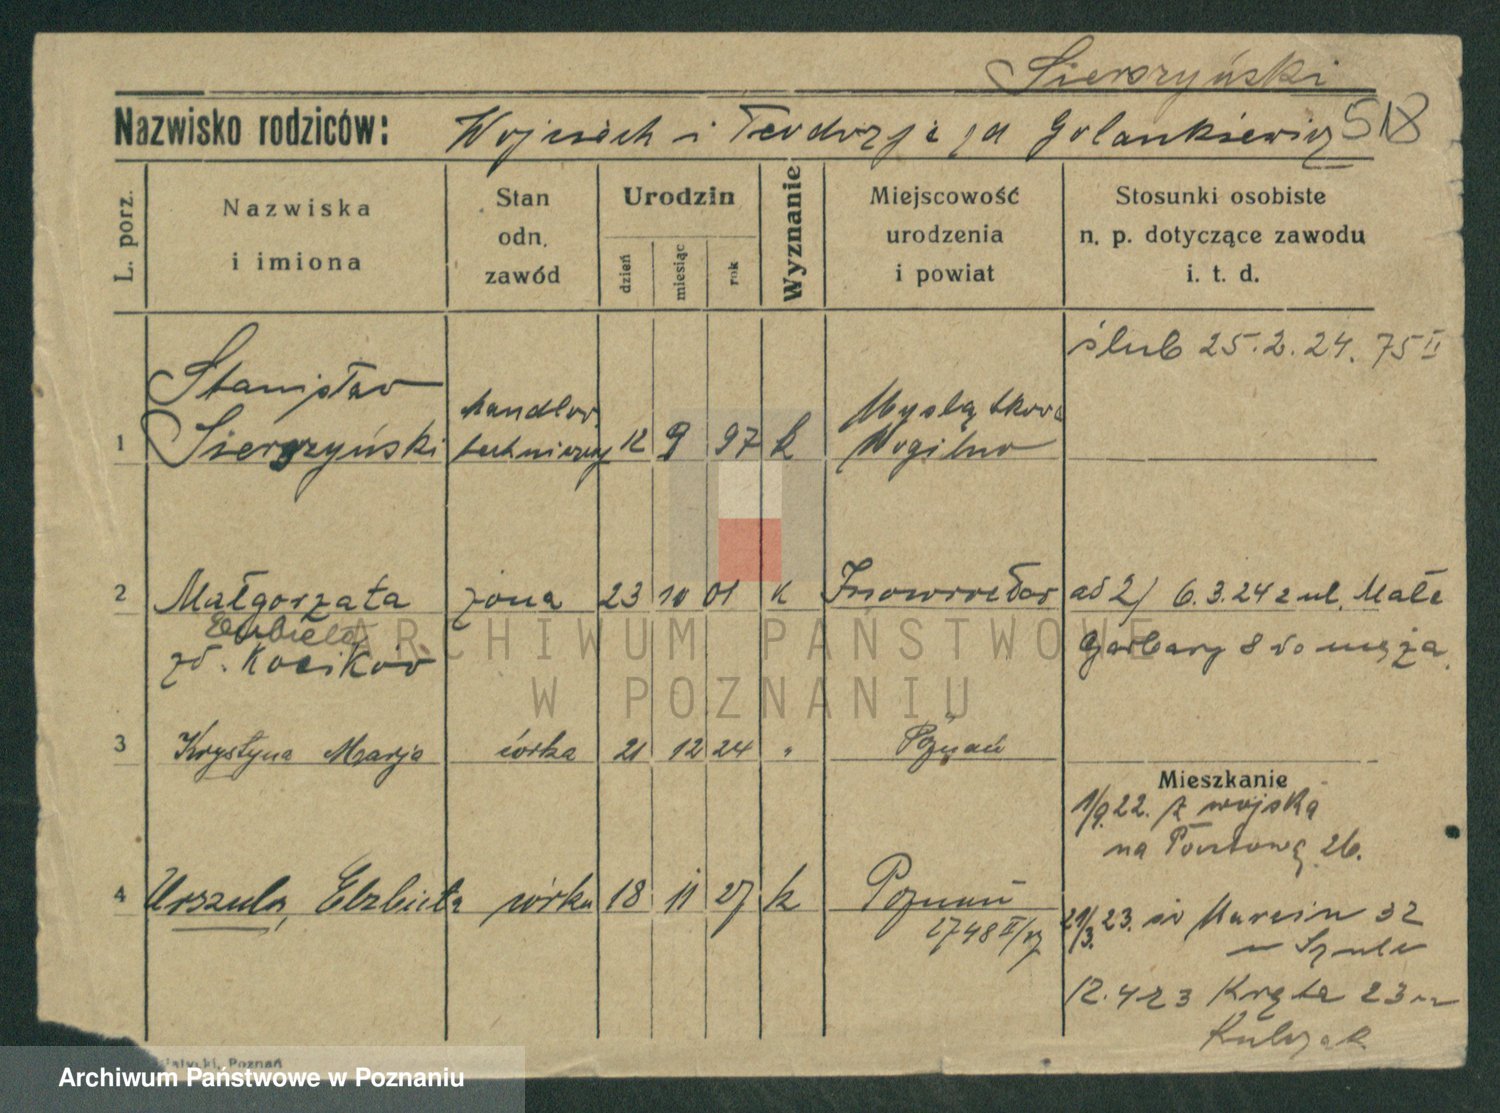 Sierszyński
518
Nazwisko rodziców: Wojciech i Teodozja zd Golankiewicz
L. porz.
Nazwiska
i imiona
Stan
odn.
zawód
Urodzin
dzień
miesiąc
rok
Wyznanie
Miejscowość
urodzenia
i powiat
Stosunki osobiste
n. p. dotyczące zawodu
i. t. d.
ślub 25.2.24. 75 II
1
Stanisław
Sierszyński
handlow.
techniczny
12 9 97 k
Mogilno
2
Małgorzata
Elżbieta
zd. Kocików
żona
23 10 01 k
Inowrocław
ad 2/ 6.3.24 z ul. Małe
Garbary 8 do męża.
3
Krystyna Marja
córka
21 12 24 "
Poznań
Mieszkanie
1/9.22. z wojska
na Pocztową 26.
4
Urszula, Elżbieta
córka
18 11 27 k
Poznań
2748 II/27
21/3.23. św Marcin 32
w Szulc
12.4 23 Kręta 23 w
Kubzak
Poznań
ARCHIWUM PAŃSTWOWE
W POZNANIU
Archiwum Państwowe w Poznaniu